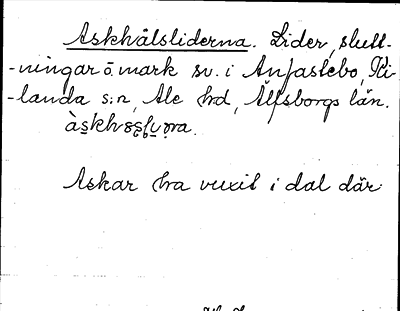 Askhålsliderna. Lider, slutt-
-ningar å mark sv. i Anfastebo, Ki-
-landa s:n, Ale hrd, Älfsborgs län.
Askar ha vuxit i dal där